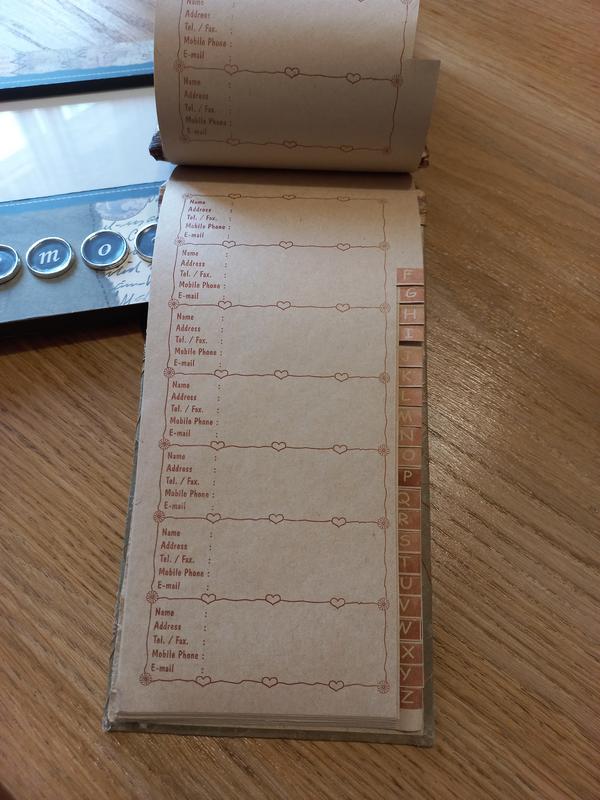 Name :
Address :
Tel. / Fax. :
Mobile Phone :
E-mail :
Name :
Address :
Tel. / Fax. :
Mobile Phone :
E-mail :
Name :
Address :
Tel. / Fax. :
Mobile Phone :
E-mail :
Name :
Address :
Tel. / Fax. :
Mobile Phone :
E-mail :
Name :
Address :
Tel. / Fax. :
Mobile Phone :
E-mail :
Name :
Address :
Tel. / Fax. :
Mobile Phone :
E-mail :
Name :
Address :
Tel. / Fax. :
Mobile Phone :
E-mail :
Name :
Address :
Tel. / Fax. :
Mobile Phone :
E-mail :
Name :
Address :
Tel. / Fax. :
Mobile Phone :
E-mail :
F
G
H
I
J
K
L
M
N
O
P
Q
R
S
T
U
V
W
X
Y
Z
m o